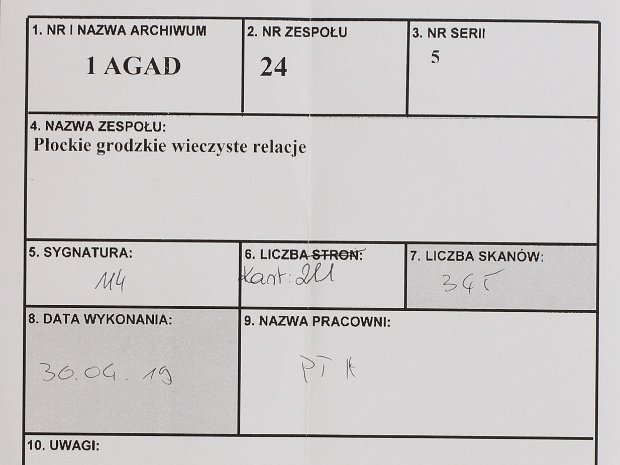 1. NR I NAZWA ARCHIWUM
1 AGAD
2. NR ZESPOŁU
24
3. NR SERII
5
4. NAZWA ZESPOŁU:
Płockie grodzkie wieczyste relacje
5. SYGNATURA:
114
6. LICZBA STRON:
Kart: 211
7. LICZBA SKANÓW:
8. DATA WYKONANIA:
30.04.19
9. NAZWA PRACOWNI:
PTK
10. UWAGI: